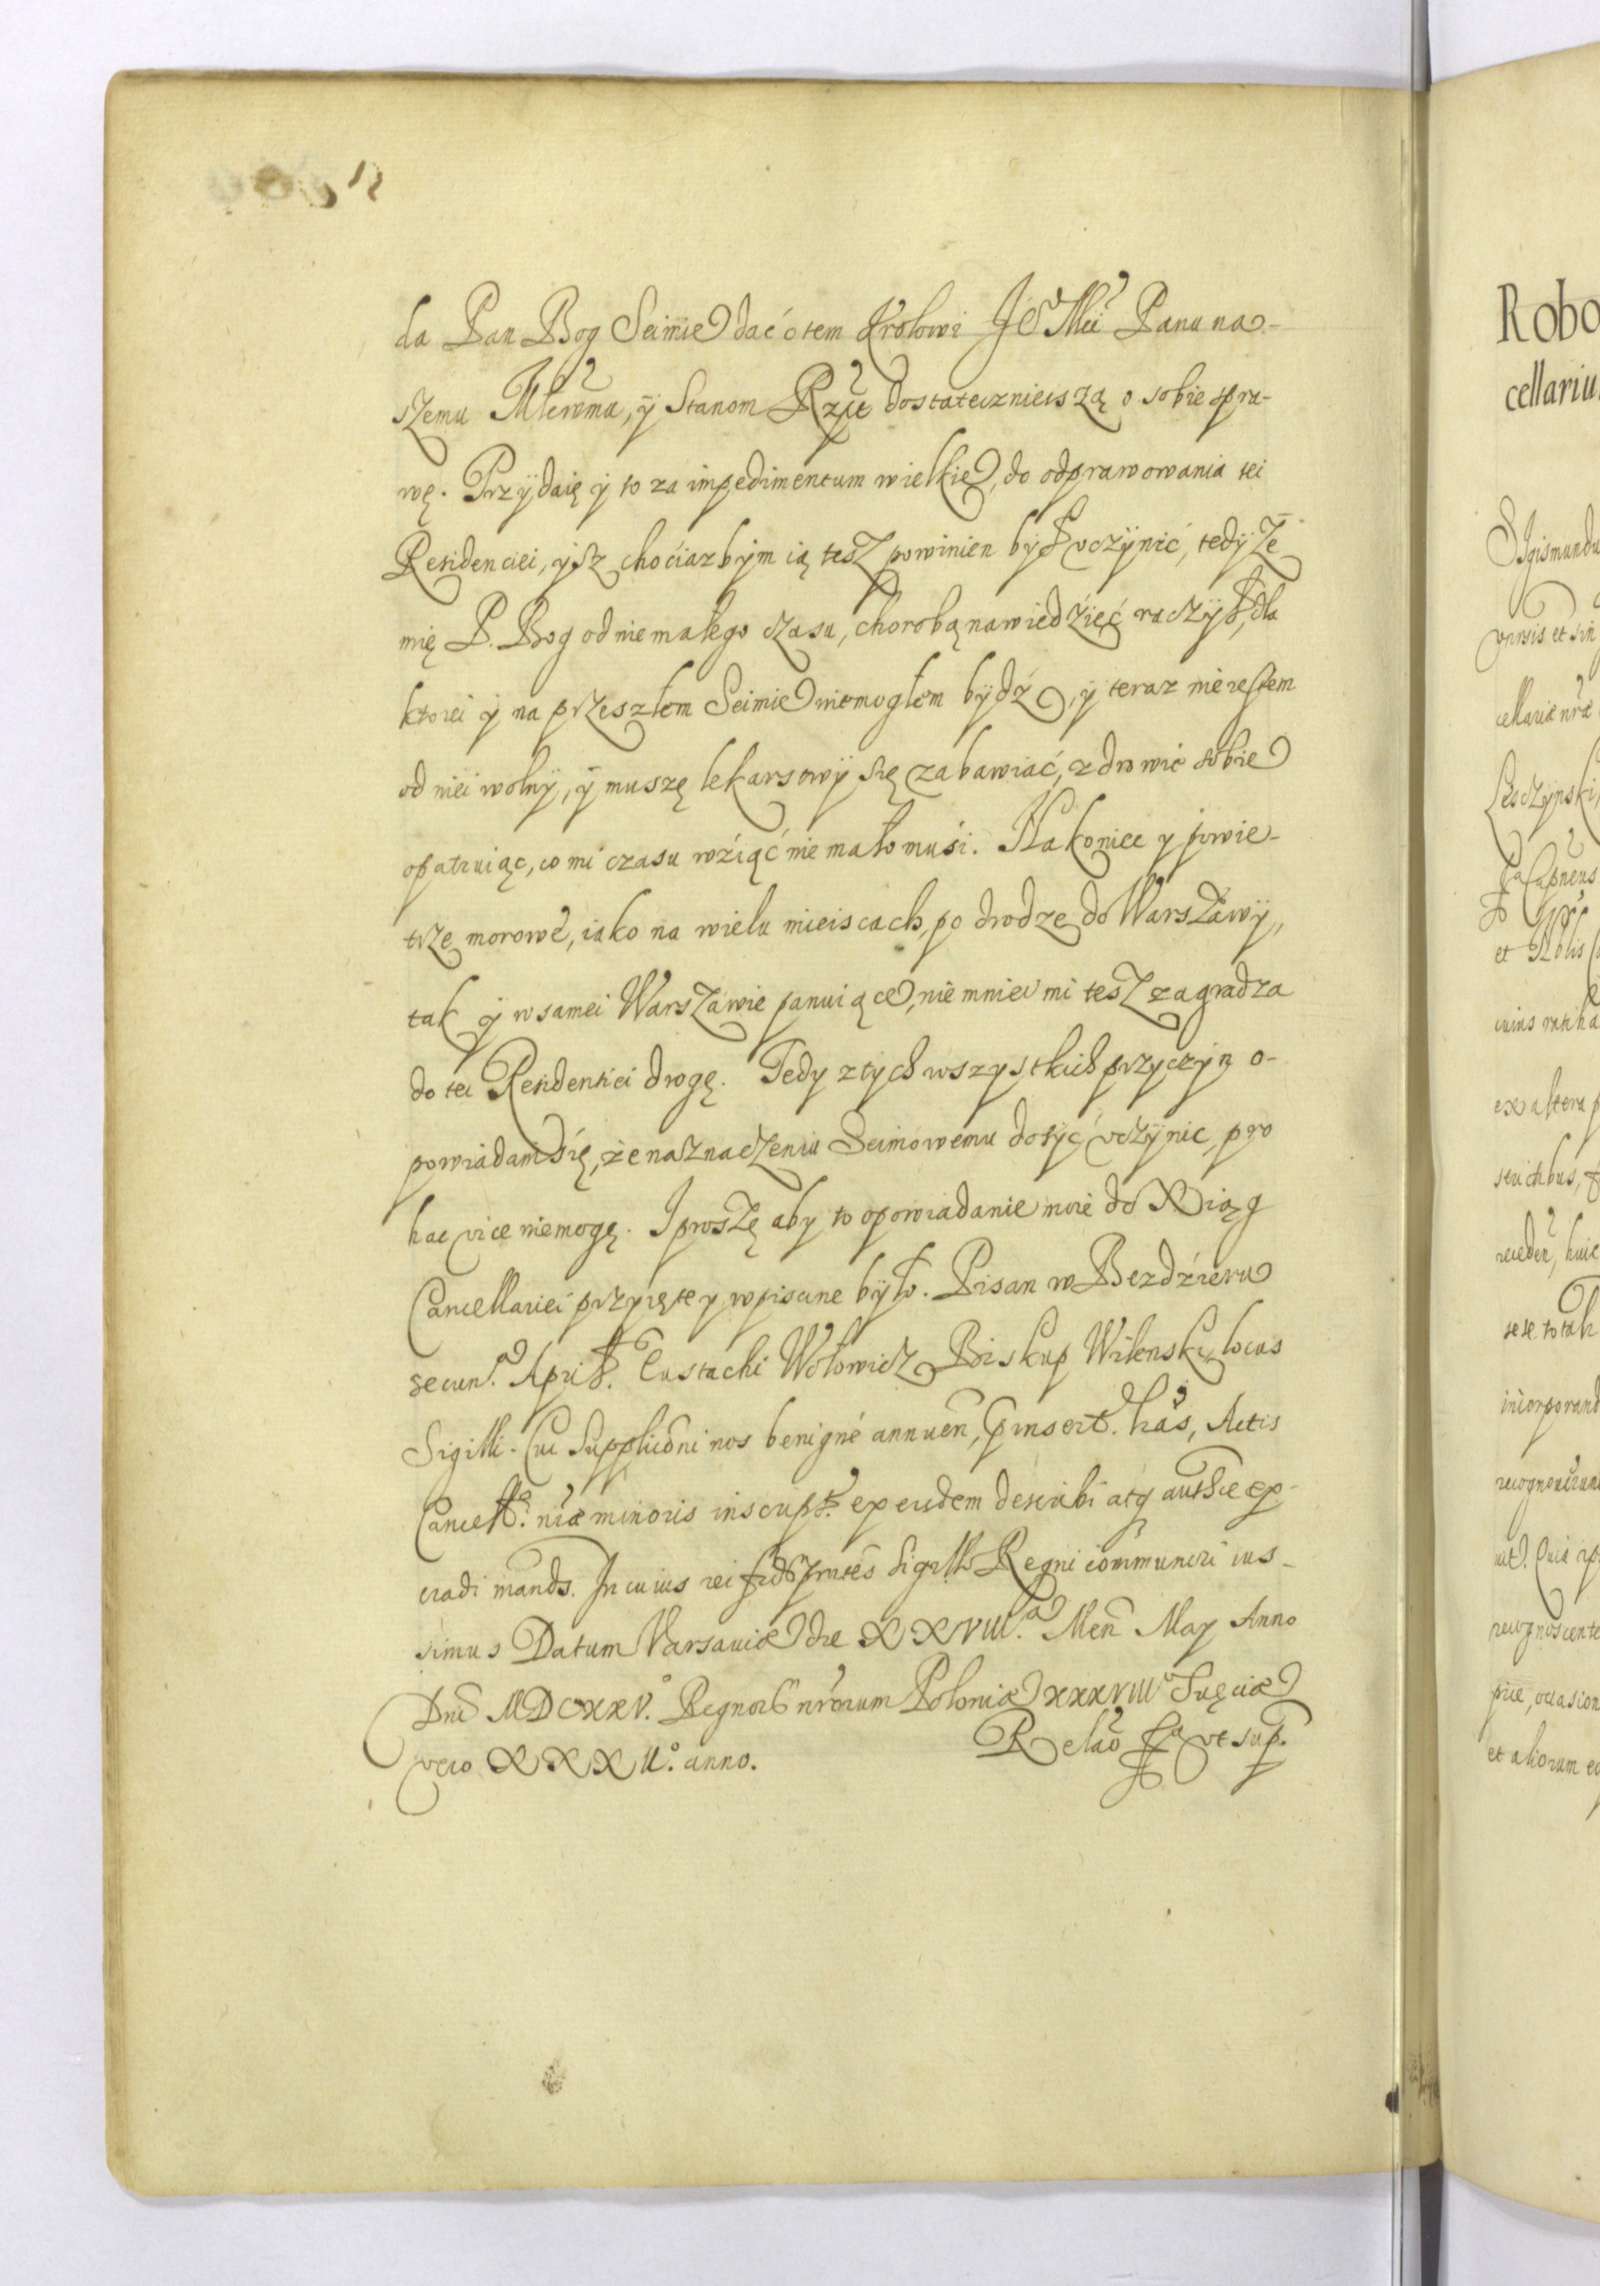 da Pan Bog Seimie dać o tem Krolowi Je° Mci Panu na-
szemu Mlćiwmu, ÿ Stanom Rzpt dostatecznieiszą o sobie spra-
wę. Przÿdaię ÿ to za impedimentum wielkie, do odprawowania tei
Residenciei, ÿsz choćiaz bÿm ią tesz powinien bÿł vczÿnić, tedÿ ze
mię P. Bog od niemałego czasu, chorobą nawiedźieć raczÿł, dla
ktorei ÿ na przeszłem Seimie niemogłem bÿdź, ÿ teraz nie iestem
od niei wolnÿ, ÿ muszę lekarsowÿ się zabawiać, zdrowie sobie
opatruiąc, co mi czasu wźiąć nie mało muśi. Nakoniec y powie-
trze morowe, iako na wielu mieiscach, po drodze do Warszawÿ,
tak ÿ w samei Warszawie panuiące, nie mniei mi tesz zagradza
do tei Residentiei drogę. Tedy z tych wszystkich przyczÿn o-
powiadam się, że naznaczeniu Seimowemu dosÿć vczÿnic, pro
hac vice niemogę. I proszę aby to opowiadanie moie do Xiąg
Cancellariei przyięte y wpisane bÿło. Pisan w Bezdźierzu
secun. April. Eustachi Wołowicz Biskup Wilenski, locus
Sigilli. Cui Supplicōni nos benigné annuen, insert. has, Actis
Cancell. nrae minoris inscript. ex eisdem describi atq authce ex-
tradi mands. In cuius rei fidem prntes Sigillo Regni communiri ius-
simus Datum Varsauiae die XXVIII.a Men May Anno
Dni MDCXXV.° Regnor nrorum Poloniae XXXVIII° Suęciae
vero XXXII.° anno. Relao fa vt sup.
Robo
cellariu
Sigismundu
cellariae nrae
Lesczÿnski,
cuius rati ha
ex altera p
incorporand
recognouerunt
recognoscente
et aliorum eo